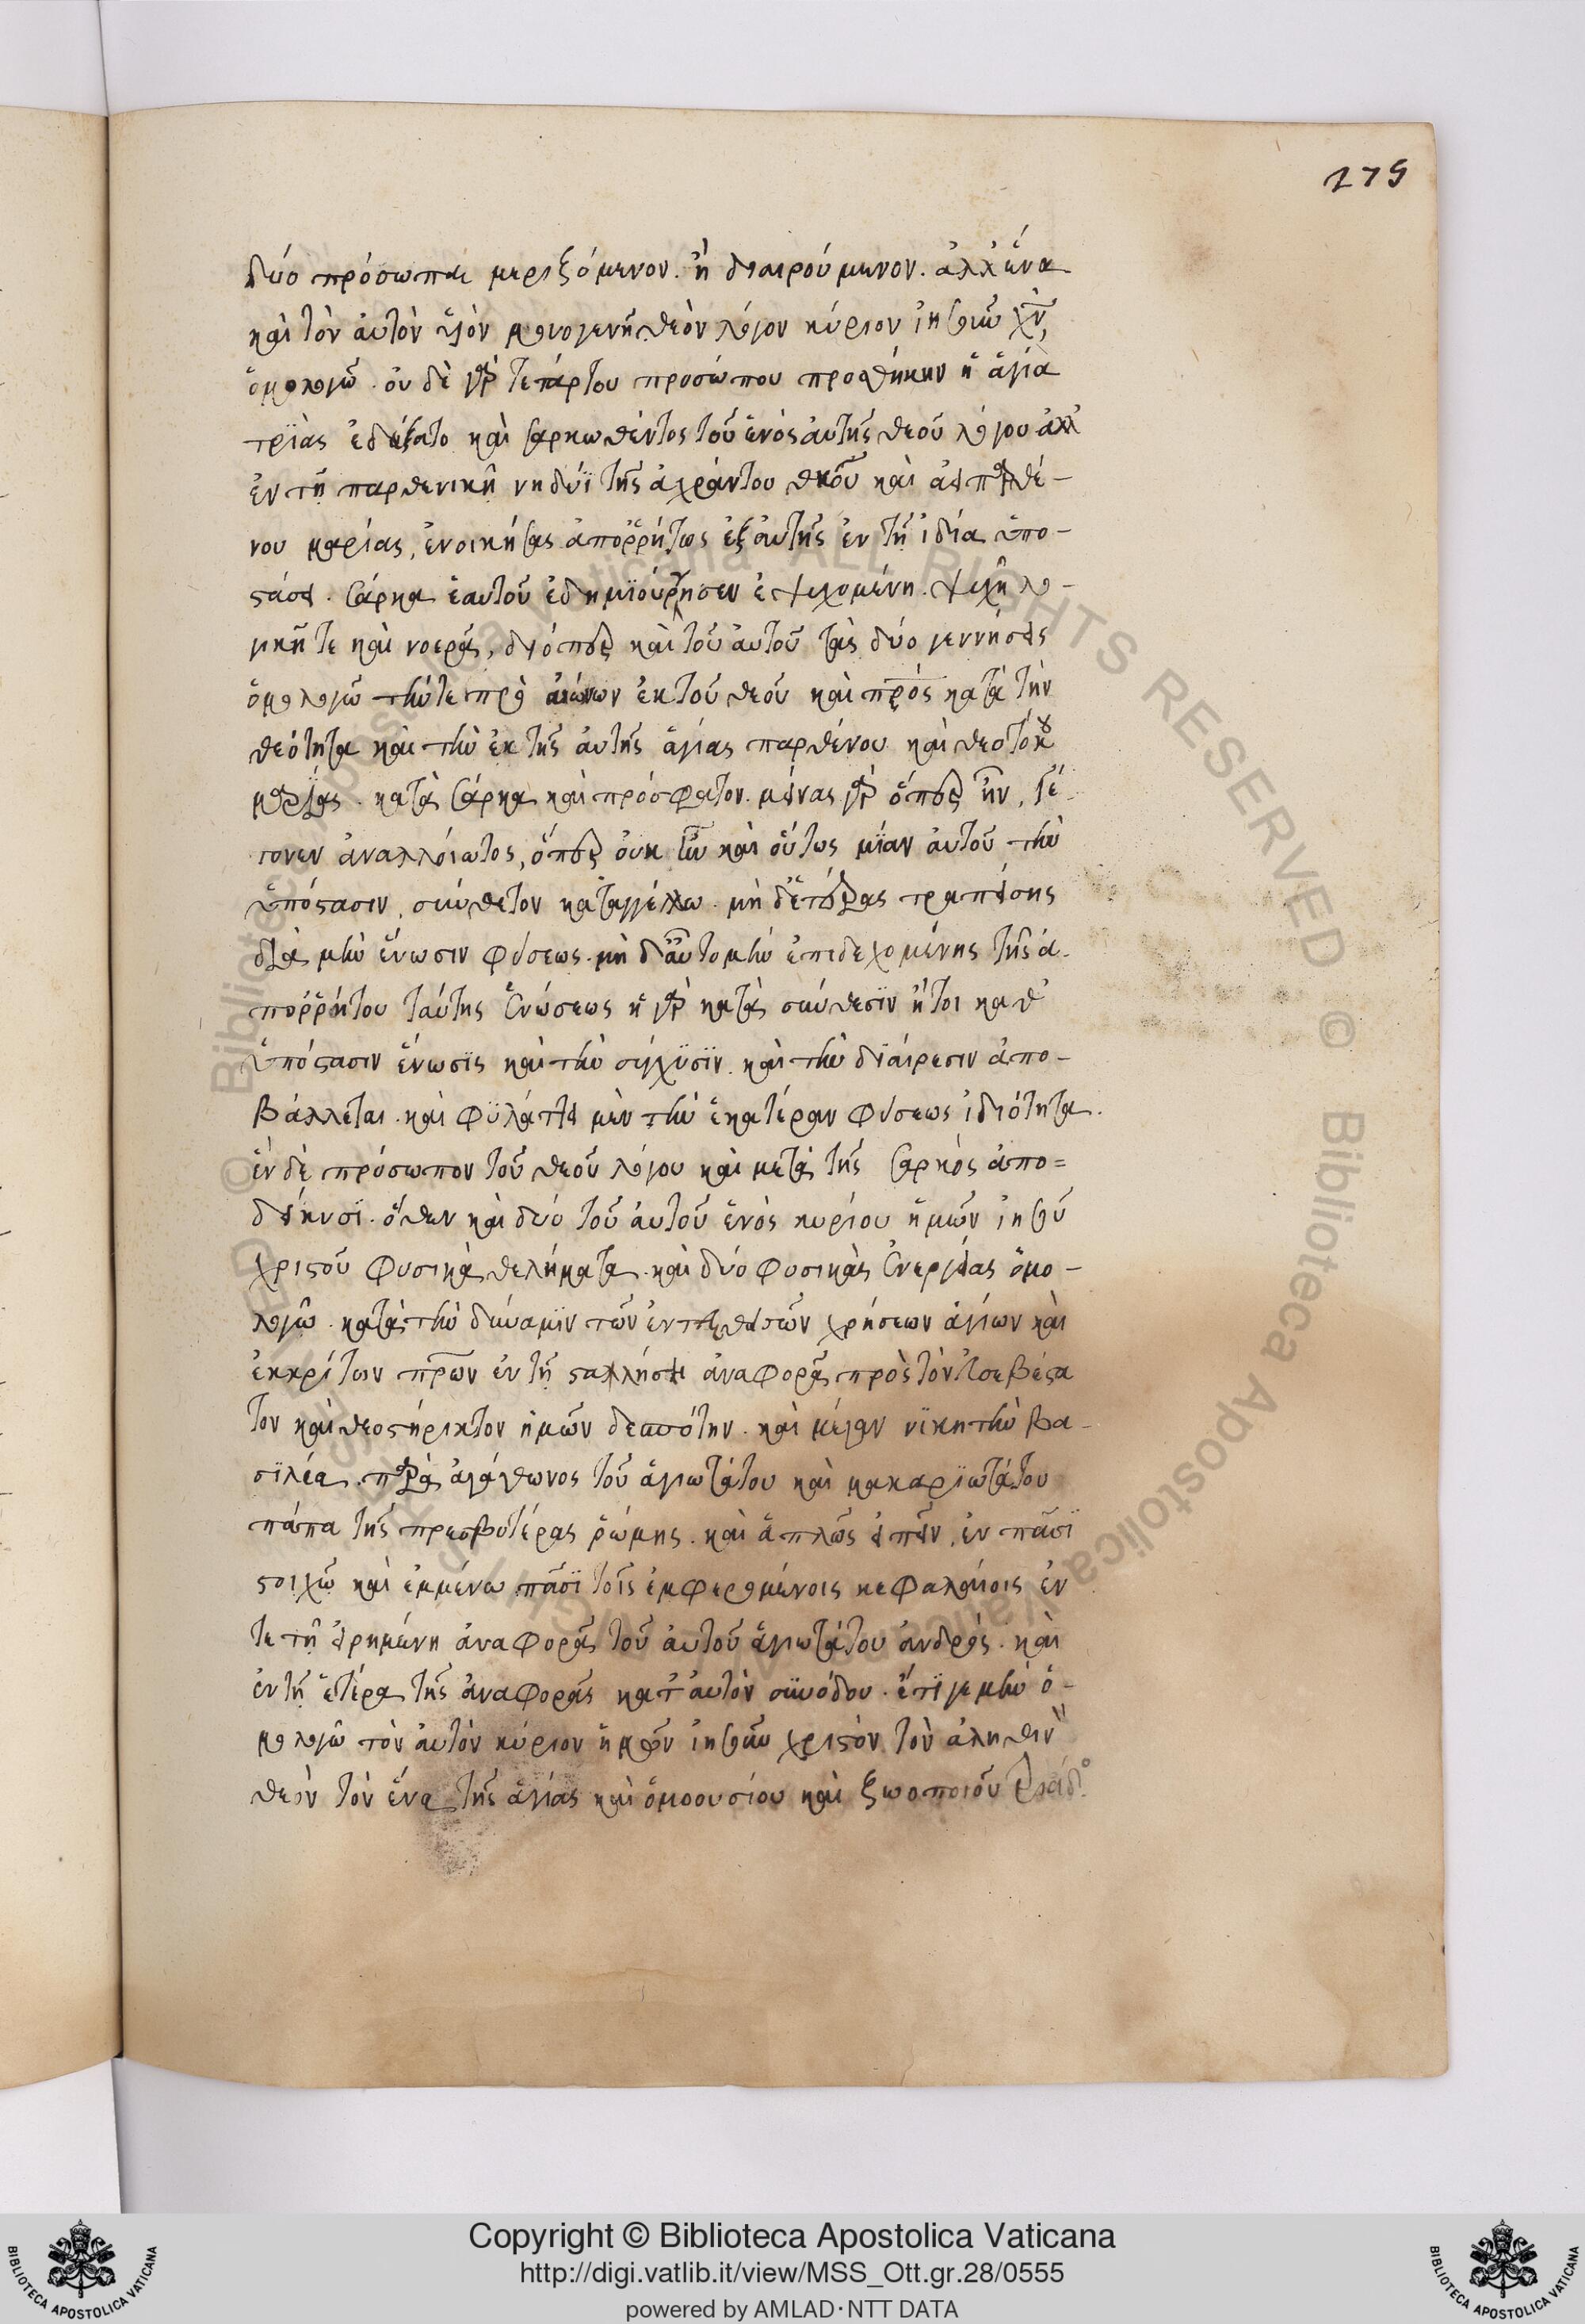 279
δύο πρόσωπα μεριζόμενον. ἢ διαιρούμενον. ἀλλ' ἕνα
καὶ τὸν αὐτὸν υἱὸν μονογενῆ θεὸν λόγον κύριον ἰησοῦν χν,
ὁμολογῶ. οὐδὲ γὰρ τετάρτου προσώπου προσθήκην ἡ ἁγία
τριὰς ἐδέξατο καὶ σαρκωθέντος τοῦ ἑνὸς αὐτῆς θεοῦ λόγου ἀλλ'
ἐν τῇ παρθενικῇ νηδύϊ τῆς ἀχράντου θκου καὶ ἀειπαρθέ-
νου μαρίας, ἐνοικήσας ἀπορρήτως ἐξ αὐτῆς ἐν τῇ ἰδία ὑπο-
στάσει. σάρκα ἑαυτοῦ ἐδημϊούργησεν ἐψυχομένη. ψυχῆ λο-
γικῆ τε καὶ νοερᾶ, διόπερ καὶ τοῦ αὐτοῦ τὰς δύο γεννήσεις
ὁμολογῶ τήν τε πρὸ αἰώνων ἐκ τοῦ θεοῦ καὶ πρός κατὰ τὴν
θεότητα καὶ τὴν ἐκ τῆς αὐτῆς ἁγίας παρθένου καὶ θεοτόκου
μαρίας. κατὰ σάρκα καὶ πρόσφατον. μείνας γὰρ ὅπερ ἦν, γέ-
γονεν ἀναλλοίωτος, ὅπερ οὐκ ἦν καὶ οὕτως μίαν αὐτοῦ τὴν
ὑπόστασιν, σύνθετον καταγγέλλω. μὴ δετέρας τραπείσης
διὰ μὴν ἕνωσιν φύσεως. μὴ δαὖ τομὴν ἐπιδεχομένης τῆς ἀ-
πορρήτου ταύτης ἑνώσεως ἡ γὰρ κατὰ σύνθεσϊν ἤτοι καθ'
ὑπόστασιν ἕνωσϊς καὶ τὴν σύγχϋσϊν. καὶ τὴν διαίρεσιν ἀπο-
βάλλεται. καὶ φϋλάττει μὲν τὴν ἑκατέραν φύσεως ἰδιότητα.
ἓν δὲ πρόσωπον τοῦ θεοῦ λόγου καὶ μετὰ τῆς σαρκὸς ἀπο=
δείκνυσϊ. ὅθεν καὶ δυό τοῦ αὐτοῦ ἑνὸς κυρίου ἡμῶν ἰησοῦ
χριστοῦ φυσικὰ θελήματα. καὶ δύο φυσικὰς ἐνεργείας ὁμο-
λογῶ. κατὰ τὴν δύναμϊν τῶν ἐντεθεισῶν χρήσεων ἁγίων καὶ
ἐκκρίτων πρων ἐν τῇ σταλλήσει ἀναφορᾶ πρὸς τὸν εὐσεβέστα
τον καὶ θεοστήρικτον ἡμῶν δεσπότην. καὶ μέγαν νϊκητὴν βα-
σϊλέα. παρὰ ἀγάθωνος τοῦ ἁγιωτάτου καὶ μακαρϊωτάτου
πάπα τῆς πρεσβυτέρας ῥώμης. καὶ ἁπλῶς εἰπεῖν. ἐν πᾶσϊ
στοιχῶ καὶ ἐμμένω πᾶσϊ τοῖς ἐμφερομένοις κεφαλαίοις ἐν
τε τῇ εἰρημένη ἀναφορᾶ τοῦ αὐτοῦ ἁγιωτάτου ἀνδρὸς. καὶ
ἐν τῇ ἑτέρα τῆς ἀναφορᾶς κατ' αὐτὸν συνόδου. ἔτϊ γε μὴν ὁ-
μολογῶ τὸν αὐτὸν κύριον ἡμῶν ἰησοῦν χριστὸν τὸν ἀληθινὸν
θεὸν τὸν ἕνα τῆς ἁγίας καὶ ὁμοουσίου καὶ ζωοποιοῦ τριάδος
Copyright © Biblioteca Apostolica Vaticana
http://digi.vatlib.it/view/MSS_Ott.gr.28/0555
powered by AMLAD·NTT DATA